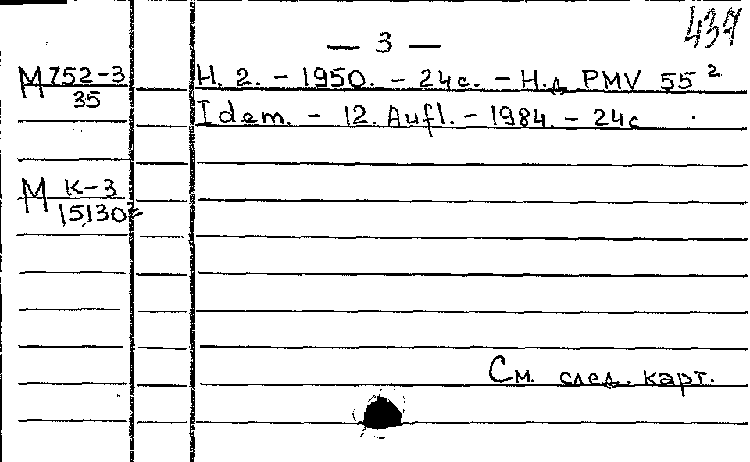 437
— 3 —
М 752-3
35
H. 2. - 1950. - 24 с. - Н.д. PMV 55²
Idem. - 12. Aufl. - 1984. - 24 с
М К-3
15130
См. след. карт.